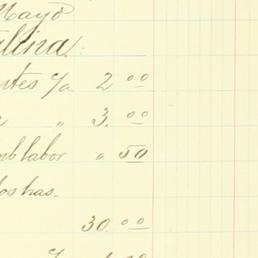 Mayo
llina.
rtes c/a 2 00
" 3. 00
mb labor " 50
los has.
30. 00